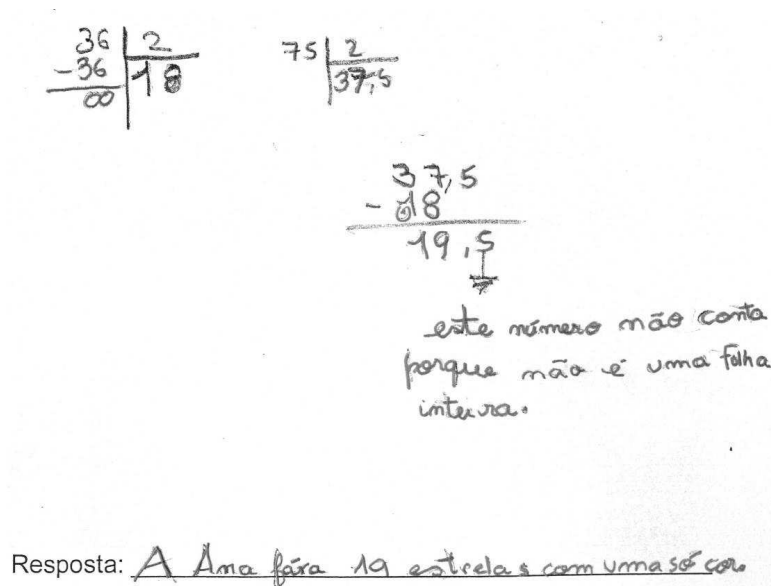 36 | 2
-36 | 18
00
75 | 2
37,5
37,5
- 018
19,5
este número não conta
porque não é uma folha
inteira.
Resposta: A Ana fára 19 estrelas com uma só cor.